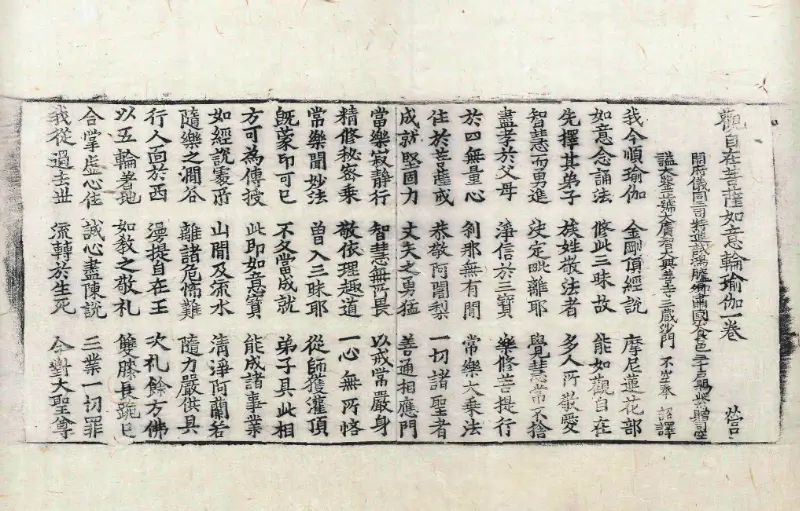 觀自在菩薩如意輪瑜伽一卷 營
開府儀同三司特進試鴻臚卿肅國公食邑三千戶賜紫贈司空
諡大鑒正號大廣智大興善寺三藏沙門 不空奉 詔譯
我今順瑜伽 金剛頂經說 摩尼蓮花部
如意念誦法 修此三昧故 能如觀自在
先擇其弟子 族姓敬法者 多人所敬愛
智慧而勇進 決定毗離耶 覺慧常不捨
盡孝於父母 淨信於三寶 樂修菩提行
於四無量心 刹那無有間 常樂大乘法
住於菩薩戒 恭敬阿闍梨 一切諸聖者
成就堅固力 丈夫之勇猛 善通相應門
當樂寂靜行 智慧無所畏 以戒常嚴身
精修秘密乘 敬依理趣道 一心無所悋
常樂聞妙法 曾入三昧耶 從師獲灌頂
旣蒙印可已 不久當成就 弟子具此相
方可為傳授 此即如意寶 能成諸事業
如經說處所 山間及流水 清淨阿蘭若
隨樂之澗谷 離諸危怖難 隨力嚴供具
行人面於西 遍擬自在王 次礼餘方佛
以五輪著地 如教之敬礼 雙膝長跪已
合掌虛心住 誠心盡陳說 三業一切罪
我從過去世 流轉於生死 今對大聖尊